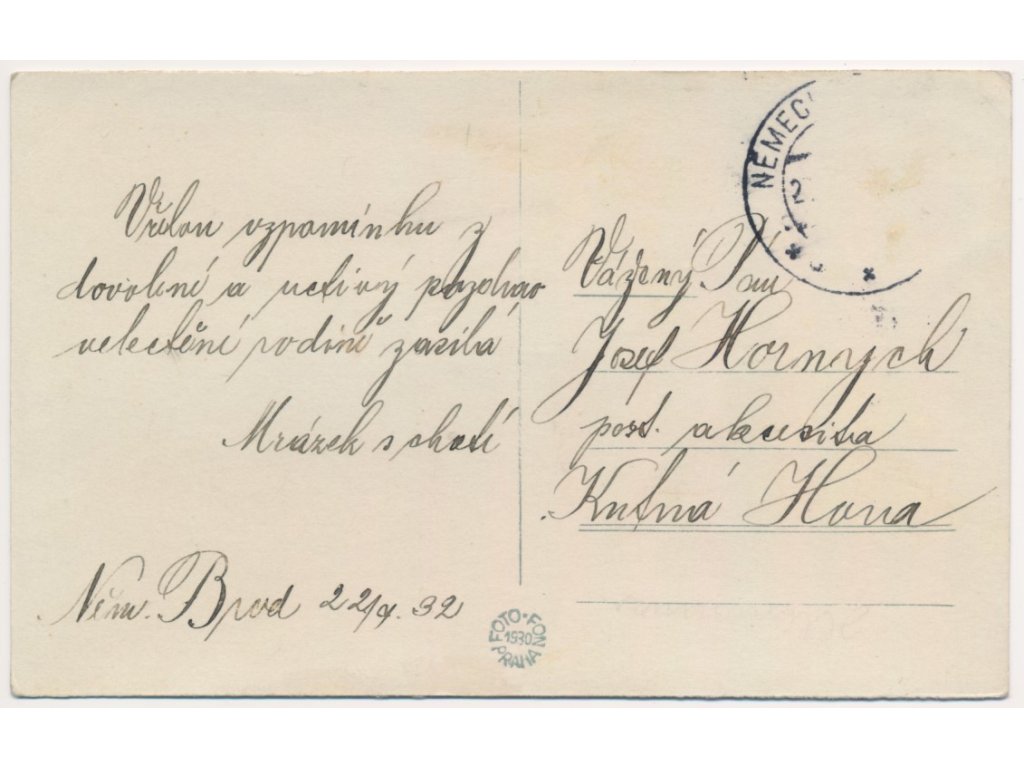 Vřelou vzpomínku z
dovolené a uctivý pozdrav
velectěné rodině zasílá
Mrázek s chotí
Něm. Brod 22/9. 32
NĚMEC
2
Vážený Pan
Josef Hornych
pošt. akcesita
Kutná Hora
FOTO-FON
1930
PRAHA